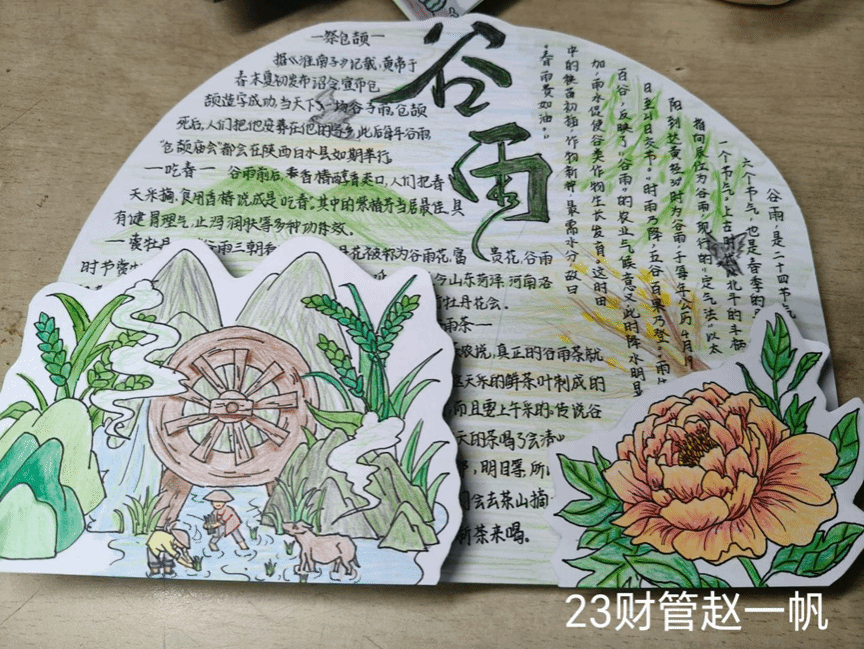 谷雨
谷雨,是二十四节气
六个节气,也是春季的
一个节气。上古时代北斗的斗柄
指向辰位为谷雨,现行的"定气法"以太
阳到达黄经30°时为谷雨,于每年公历4月19
日至21日交节。"时雨乃降,五谷百果乃登。"雨
百谷,反映了"谷雨"的农业气候意义,此时降水明显
加,雨水促使谷类作物生长发育,这时田
中的秧苗初插,作物新种,最需水分,故曰
"春雨贵如油。"
—祭仓颉—
据《淮南子》记载,黄帝于
春末夏初发布诏令,宣布仓
颉造字成功,当天下了一场谷子雨,仓颉
死后,人们把他安葬在他的家乡,此后每年谷雨
仓颉庙会都会在陕西白水县如期举行
—吃春— 谷雨雨后,香椿醇香爽口,人们把春
天采摘,食用香椿说成是"吃春"。其中的
当居最佳,具
有健胃理气,止泻润肤等多种功绩效。
—赏牡丹—
雨三朝看
花被称为谷雨花,富贵花,谷雨
时节赏
今山东菏泽,河南洛
牡丹花会。
雨茶—
农说,真正的谷雨茶就
这天采的鲜茶叶制成的
而且要上午采的,传说谷
天的茶喝了会清
明目等,所
们会去茶山摘
新茶来喝。
23财管赵一帆